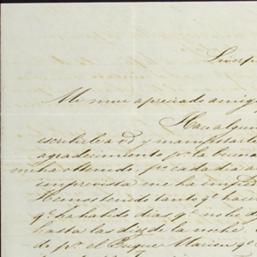 Liverp
Mi muy apreciado amigo
Hace algun
escribirle a vd y manifestarle
agradecimiento pr la buena
me ha pr cada dia a
imprevista me ha impedi
Hemos tenido tanto qe hace
qe ha habido dias qe no he d
hasta las diez de la noche.
de pr el Buque Maria qe